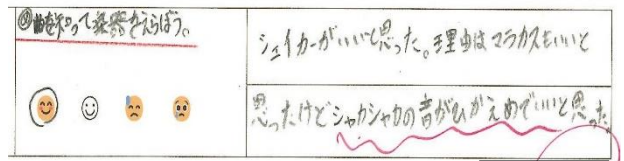 ③曲を知って楽器をえらぼう。
シェイカーがいいと思った。理由はマラカスもいいと
思ったけどシャカシャカの音がひかえめでいいと思った